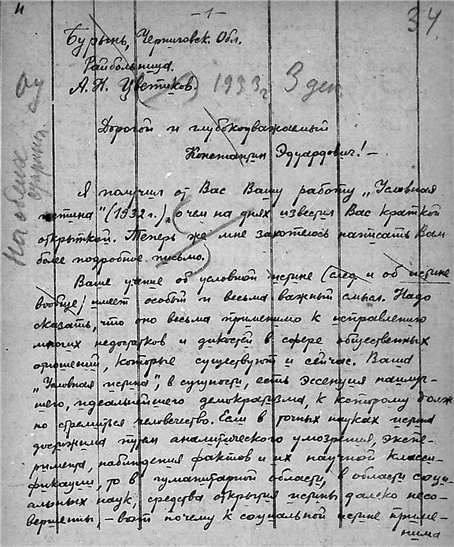 -1-
34.
Бурынь, Черниговск. Обл.
Райбольница.
А. Н. Цветиков. 1933г 3 ден
На обеих
Дорогой и глубокоуважаемый
Константин Эдуардович! –
Я получил от Вас Вашу работу „Условная
истина" (1932 г.), о чем на днях известил Вас краткой
открыткой. Теперь же мне захотелось написать Вам
более подробное письмо.
Ваше учение об условной истине (след. и об истине
вообще) имеет особый и весьма важный смысл. Надо
сказать, что оно весьма применимо к исправлению
многих недостатков и дикостей в сфере общественных
отношений, которые существуют и сейчас. Ваша
„Условная истина", в сущности, есть эссенция наилуч-
шего, идеальнейшего демократизма, к которому долж-
но стремиться человечество. Если в точных науках истина
достижима путем аналитического умозрения, экспе-
римента, наблюдения фактов и их научной класси-
фикации, то в гуманитарной области, в области соци-
альных наук, средства открытия истины далеко несо-
вершенны – вот почему к социальной истине приме-
нима